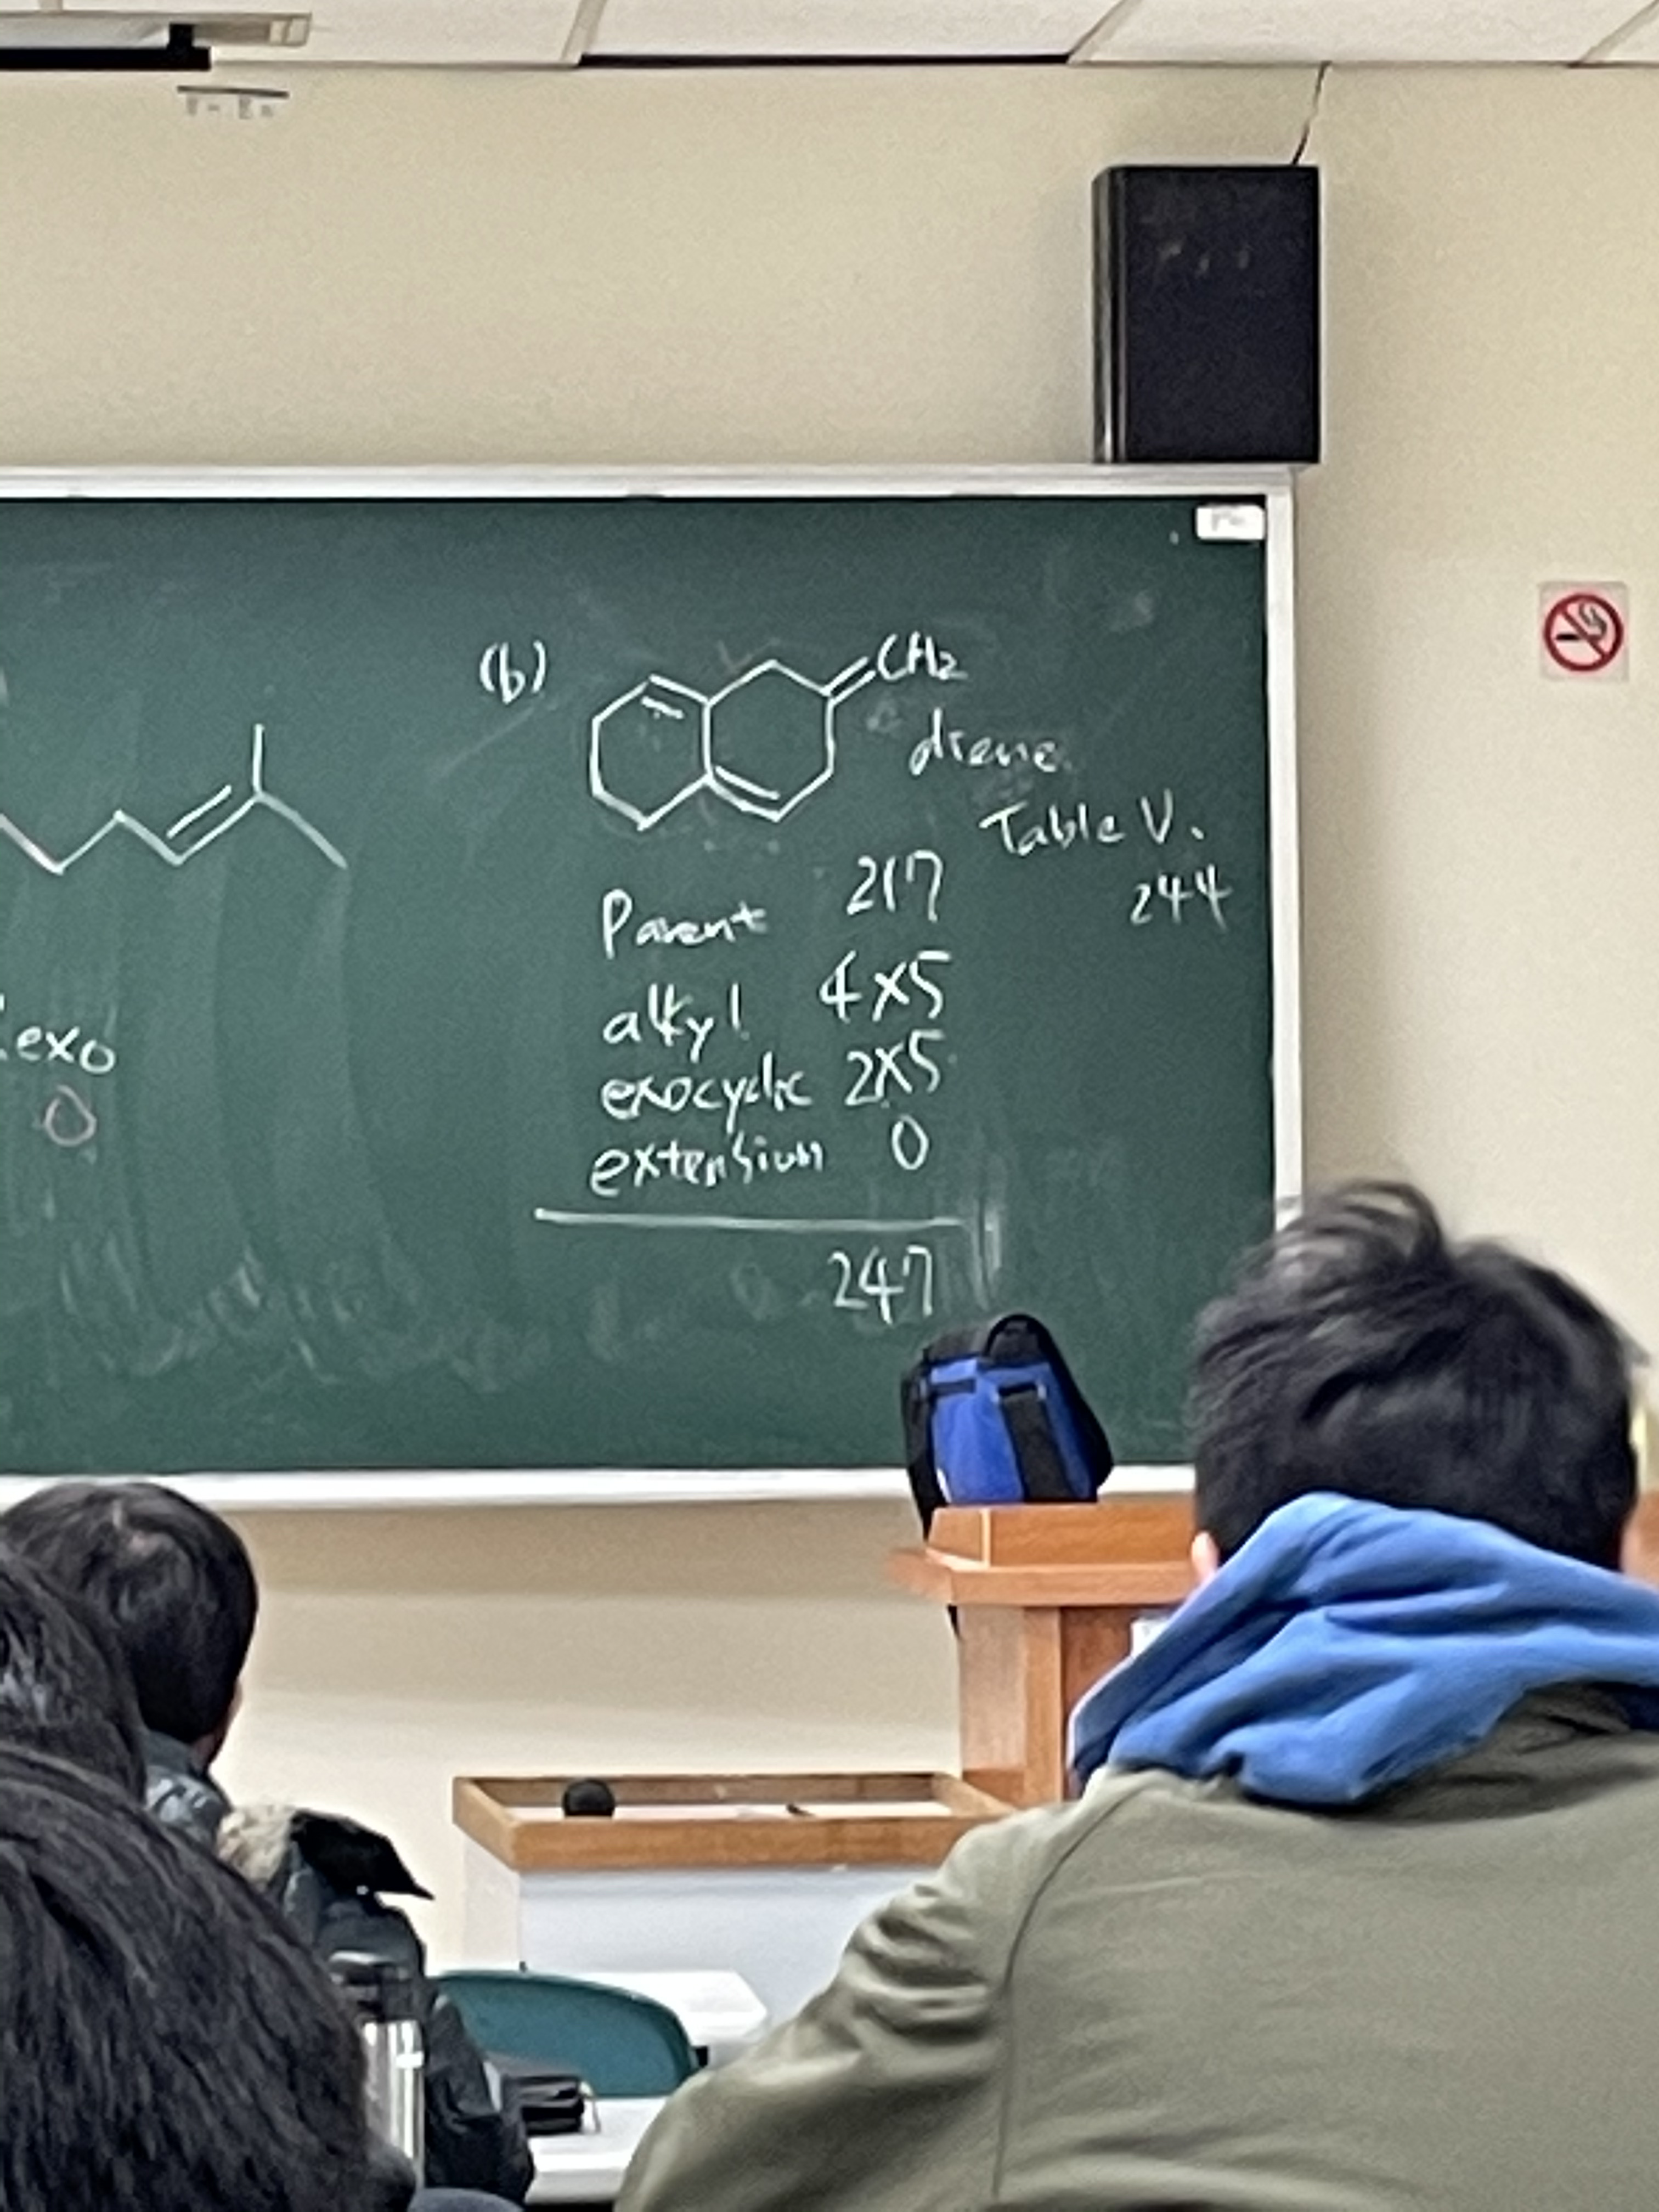 (b)
CH₂
diene
Table V.
244
Parent 217
alkyl 4×5
exocyclic 2×5
extension 0
247
exo
0